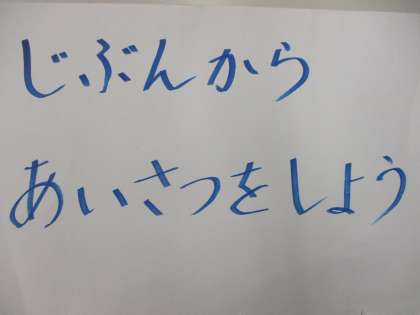 じぶんから
あいさつをしよう